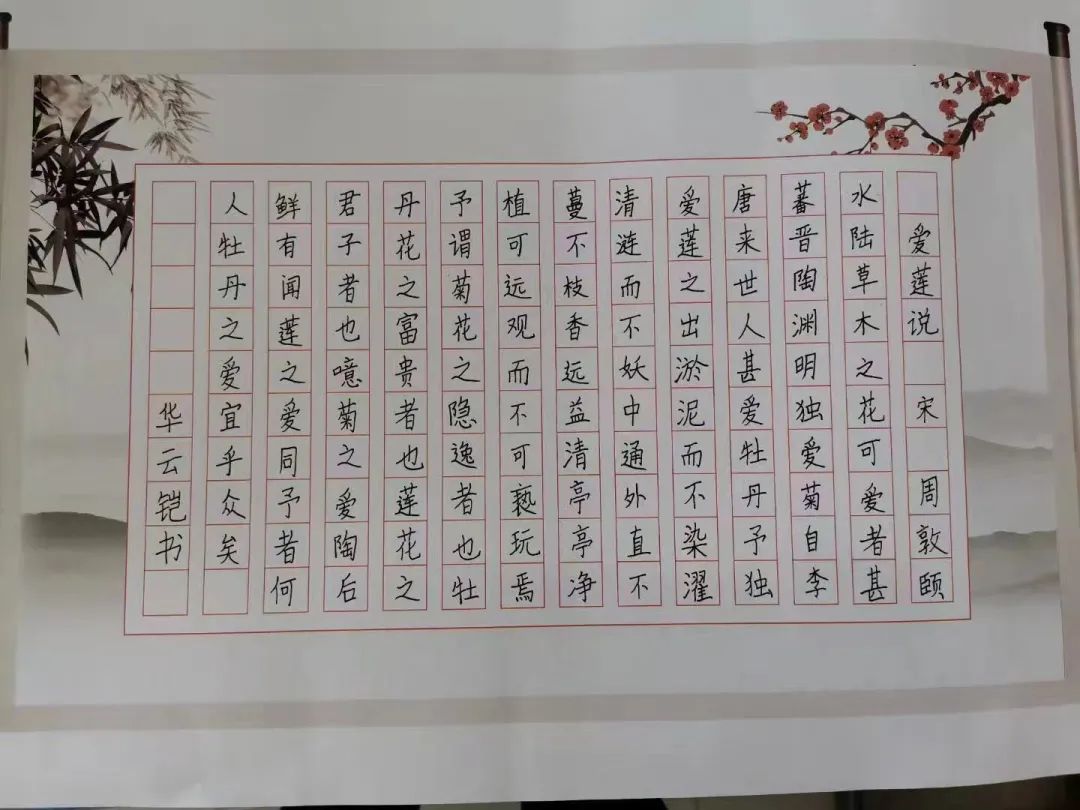 爱莲说 宋 周敦颐
水陆草木之花可爱者甚
蕃晋陶渊明独爱菊自李
唐来世人甚爱牡丹予独
爱莲之出淤泥而不染濯
清涟而不妖中通外直不
蔓不枝香远益清亭亭净
植可远观而不可亵玩焉
予谓菊花之隐逸者也牡
丹花之富贵者也莲花之
君子者也噫菊之爱陶后
鲜有闻莲之爱同予者何
人牡丹之爱宜乎众矣
华云铠书